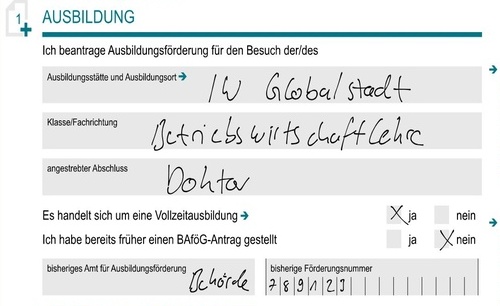 1 AUSBILDUNG
Ich beantrage Ausbildungsförderung für den Besuch der/des
Ausbildungsstätte und Ausbildungsort → IW Globalstadt
Klasse/Fachrichtung Betriebswirtschaftlehre
angestrebter Abschluss Doktor
Es handelt sich um eine Vollzeitausbildung → X ja nein
Ich habe bereits früher einen BAföG-Antrag gestellt ja X nein
bisheriges Amt für Ausbildungsförderung Behörde bisherige Förderungsnummer 789123